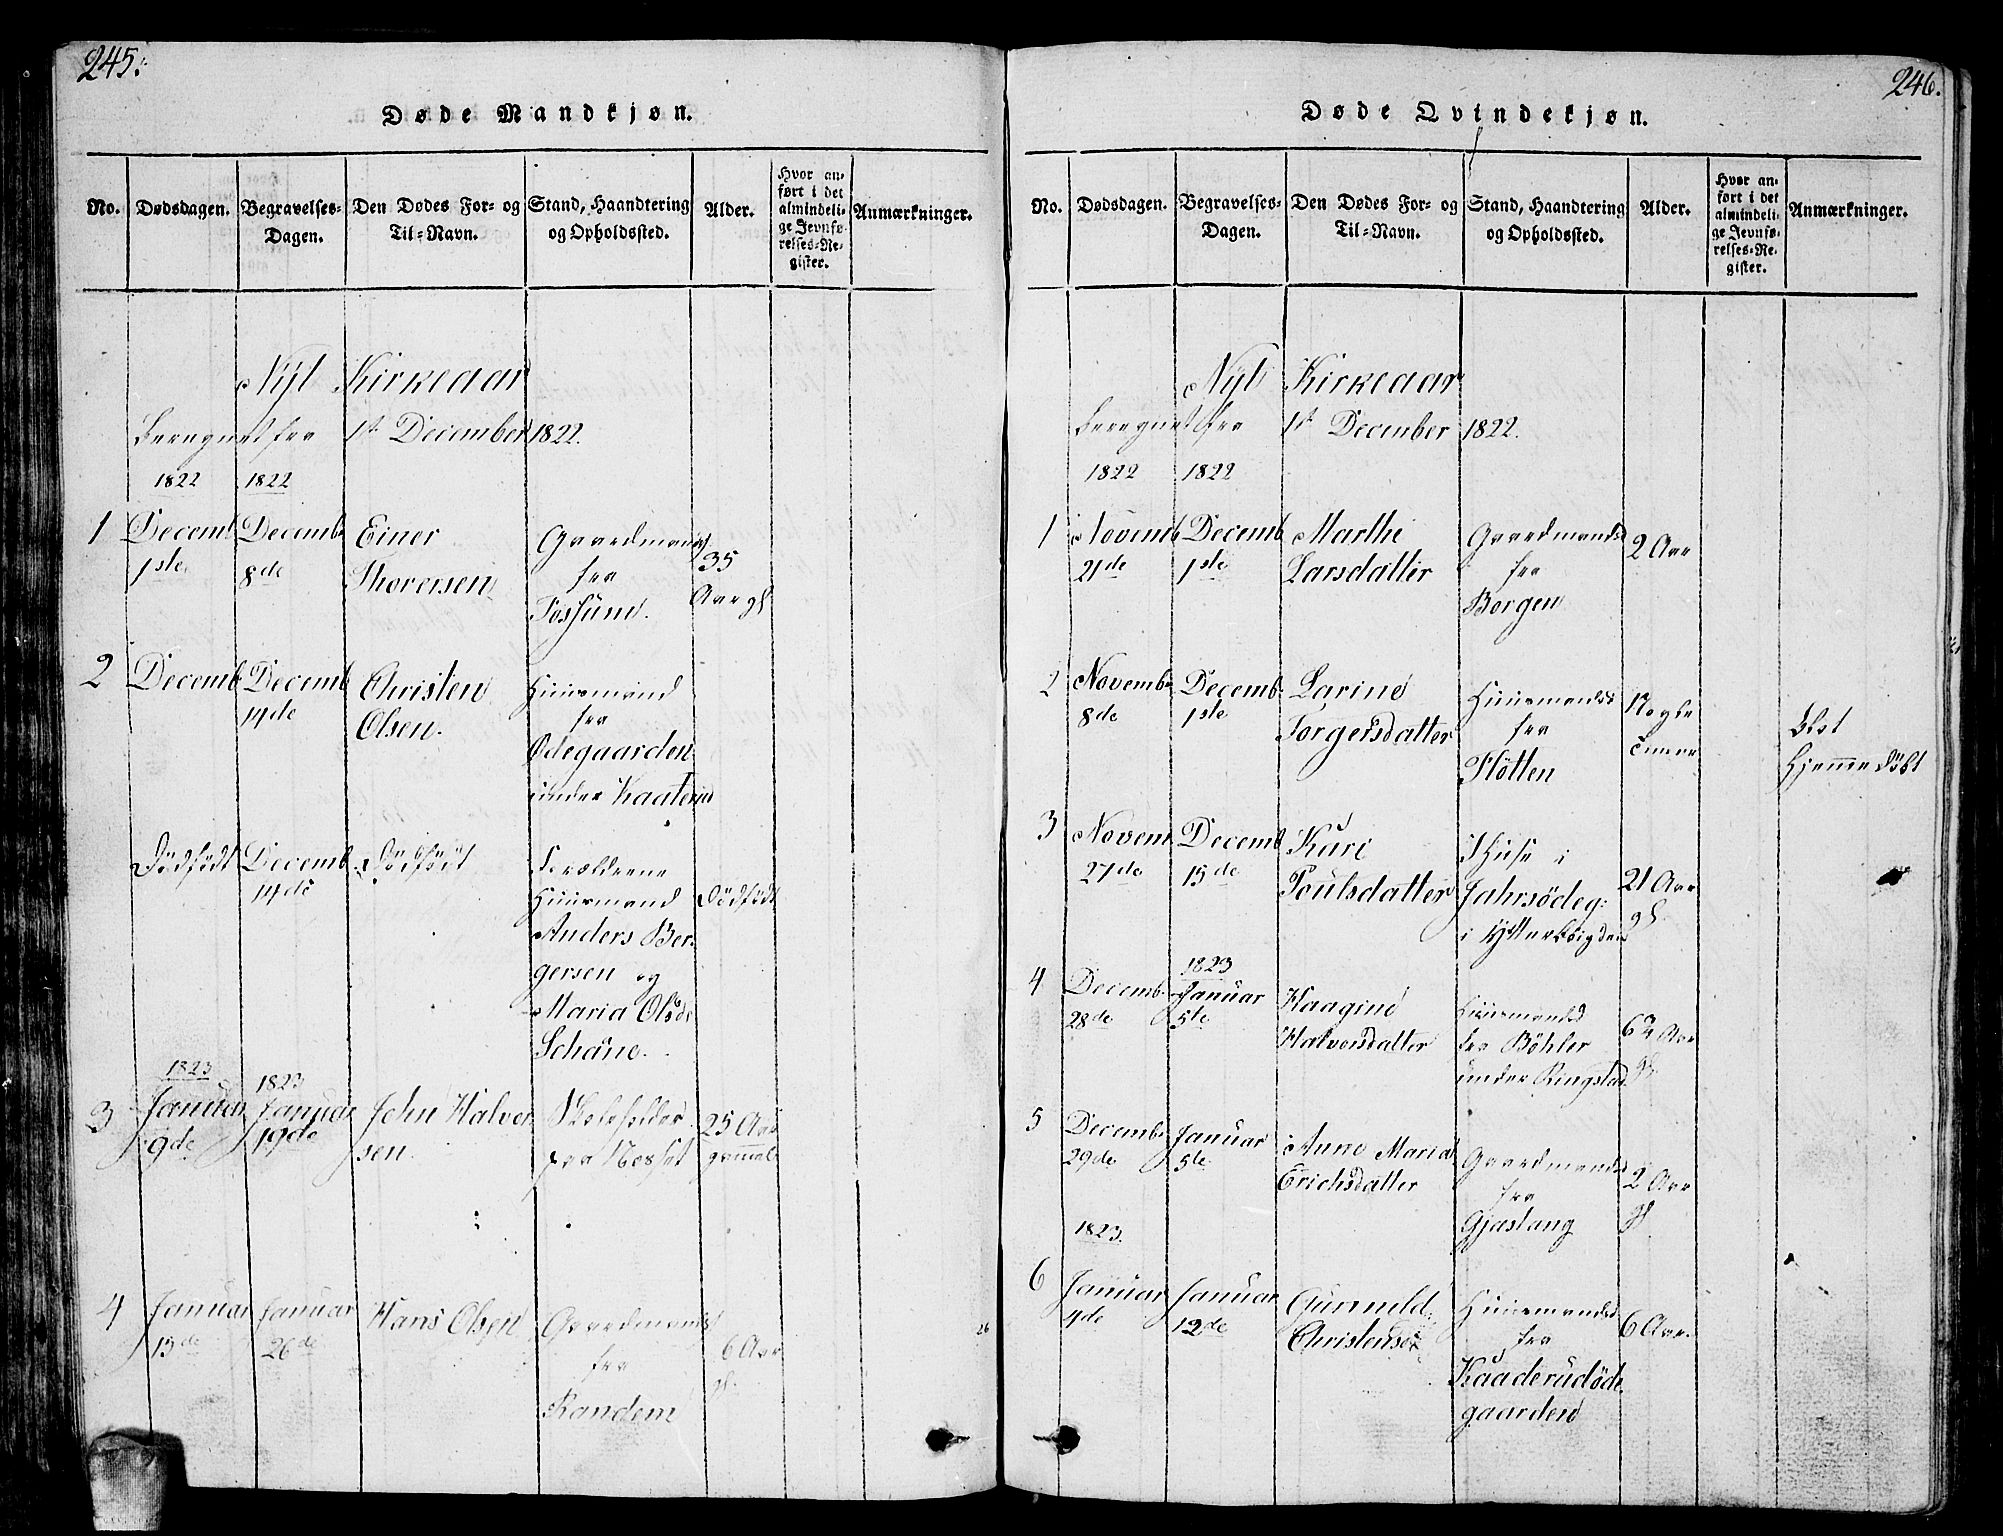 245.
Døde Mandkjøn.
No.
Dødsdagen.
Begravelses-
Dagen.
Den Dødes For- og
Til-Navn.
Stand, Haandtering
og Opholdssted.
Alder.
Hvor an-
ført i det
almindeli-
ge Jevnfø-
relses-Re-
gister.
Anmærkninger.
Nyt Kirkeaar
beregnet fra 1st December 1822.
1822
1822
1
Decemb
1ste
Decemb
8de
Einer
Thoresen
Gaardmand
fra
Fossum.
35
Aar gl
2
Decemb
Decemb
14de
Christen
Olsen.
Huusmand
fra
Ødegaarden
under Kaaterud
Dödfödt
Decemb
14de
Dödfödt
Forældrene
Huusmand
Anders Ber-
gersen og
Maria Olsd
Schöne.
Dödfödt
1823
1823
3
Januar
9de
Januar
19de
John Halver
sen.
fra Nesset
25 Aar
gammel
4
Januar
13de
Januar
26de
Hans Olsen
Gaardmands
fra
Randem
6 Aar
gl.
26
246.
Døde Qvindekjøn.
No.
Dødsdagen.
Begravelses-
Dagen.
Den Dødes For- og
Til-Navn.
Stand, Haandtering
og Opholdssted.
Alder.
Hvor an-
ført i det
almindeli-
ge Jevnfø-
relses-Re-
gister.
Anmærkninger.
Nyt Kirkeaar
beregnet fra 1st December 1822.
1822
1822
1
Novemb
21de
Decemb
1ste
Marthe
Larsdatter
Gaardmands
fra
Borgen
2 Aar
2
Novemb
8de
Decemb
1ste
Larine
Torgersdatter
Huusmands
fra
Flötten
Blot
Hjemmedöbt
3
Novem
27de
Decemb
15de
Kari
Poulsdatter
I Huse i
Jahrsödeg:
i Ytterbögden
21 Aar
gl.
4
Decemb
28de
1823
Januar
5te
Haagine
Halvorsdatter
Huusmands
fra Böhler
under Ringstad
62 Aar
gl.
5
Decemb
29de
Januar
5te
Anne Maria
Erichsdatter
Gaardmands
fra
Gjaslang
2 Aar
gl.
1823.
6
Januar
4de
Januar
12de
Gunneld
Christensd
Huusmands
fra
Kaaderudöde
gaarden
6 Aar.